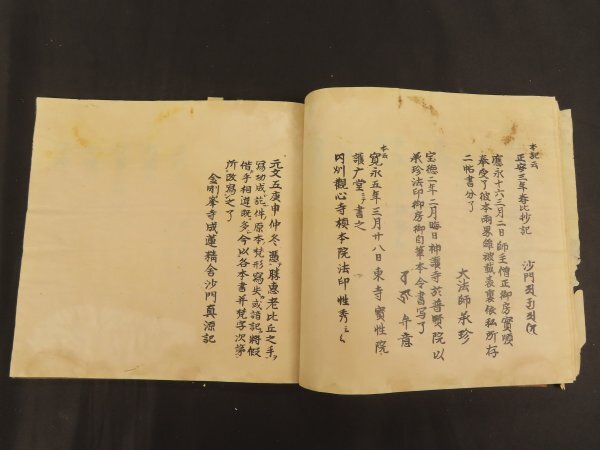 本記云
正安三年春比抄記
沙門
應永十六三月二日師主僧正御房實順
奉受了彼本兩界雖被載表裏依私所存
二帖書分了
大法師承珍
宝徳二年二月晦日神護寺於普賢院以
承珍法印御房御自筆本令書写了
弁意
本云
寛永五年三月廿八日東寺寶性院
護广堂ニテ書之
内刕觀心寺槙本院法印性秀
元文五庚申仲冬憑勝惠老比丘之手
寫功成訖佛原本梵形寫失或諳記將假
偕手相違既多今以各本書并梵字次第
所改寫之了
金剛峯寺成蓮精舎沙門真源記